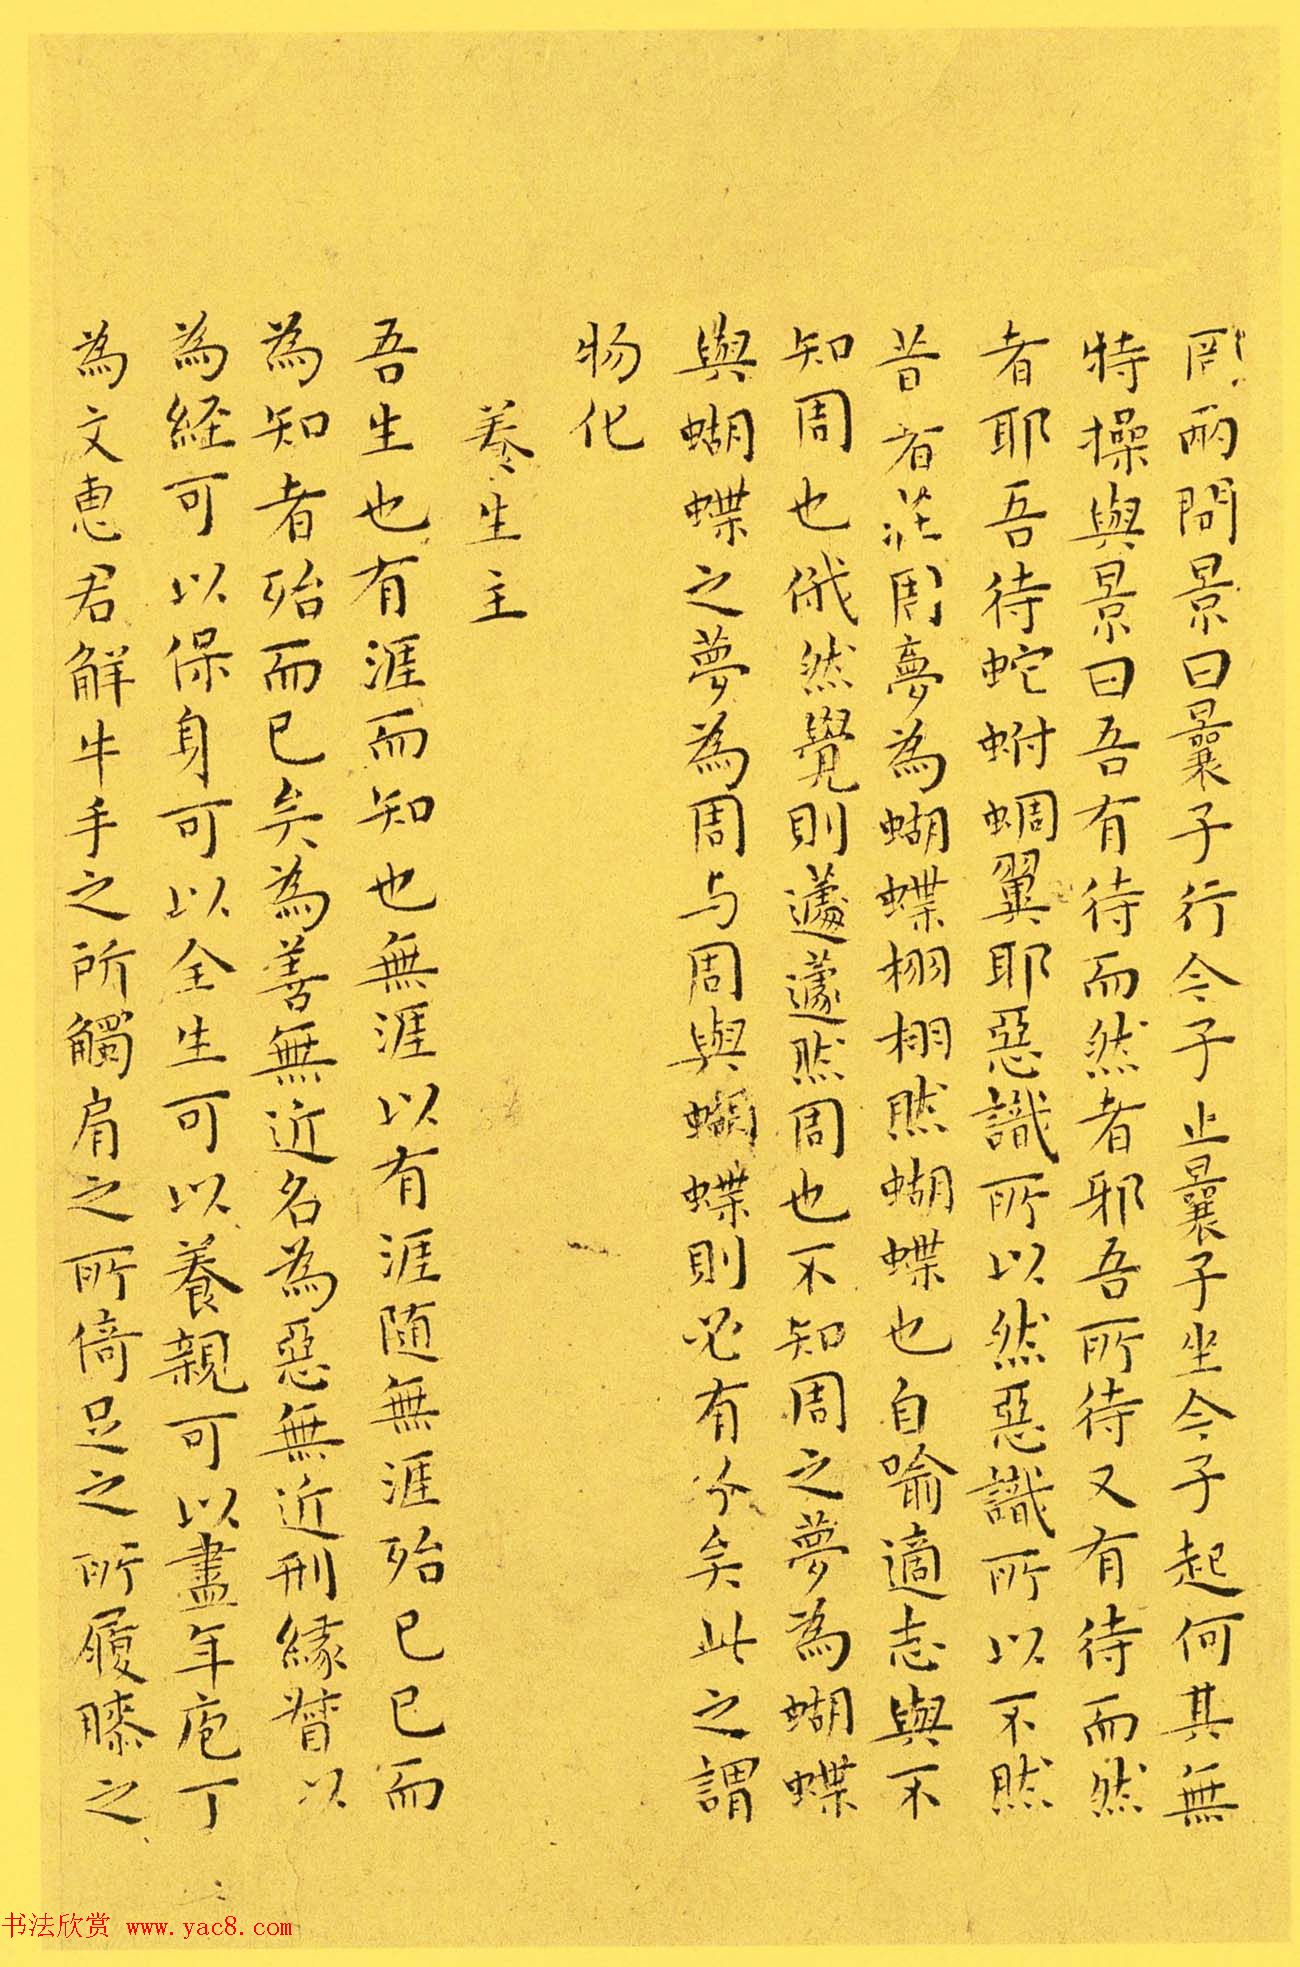 罔兩問景曰曩子行今子止曩子坐今子起何其無
特操與景曰吾有待而然者邪吾所待又有待而然
者耶吾待蛇蚹蜩翼耶惡識所以然惡識所以不然
昔者莊周夢為蝴蝶栩栩然蝴蝶也自喻適志與不
知周也俄然覺則蘧蘧然周也不知周之夢為蝴蝶
與蝴蝶之夢為周与周與蝴蝶則必有分矣此之謂
物化
養生主
吾生也有涯而知也無涯以有涯隨無涯殆已已而
為知者殆而已矣為善無近名為惡無近刑緣督以
為經可以保身可以全生可以養親可以盡年庖丁
為文惠君解牛手之所觸肩之所倚足之所履膝之
书法欣赏 www.yac8.com